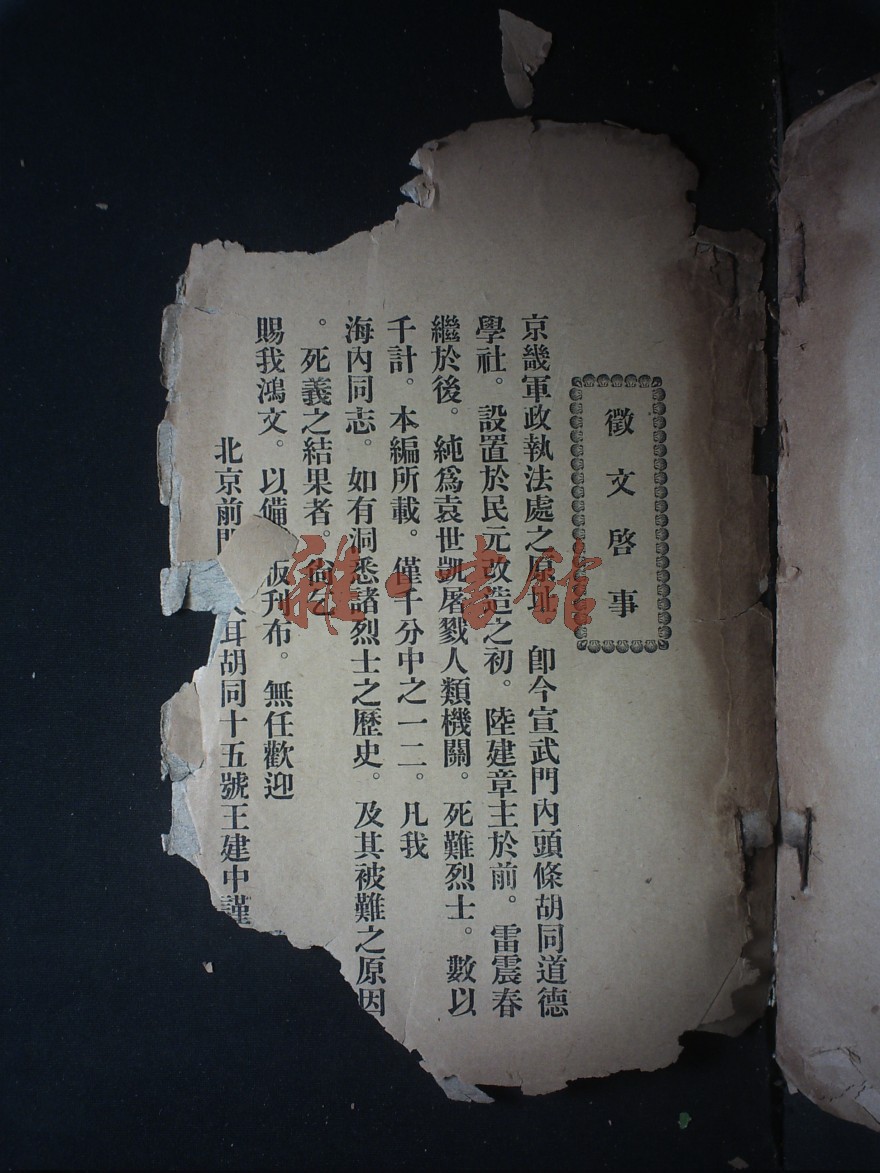 徵文啓事
京畿軍政執法處之原址　卽今宣武門內頭條胡同道德
學社。設置於民元改造之初。陸建章主於前。雷震春
繼於後。純爲袁世凱屠戮人類機關。死難烈士。數以
千計。本編所載。僅千分中之一二。凡我
海內同志。如有洞悉諸烈士之歷史。及其被難之原因
。死義之結果者。尙乞
賜我鴻文。以備版刊布。無任歡迎
北京前門耳胡同十五號王建中謹
雜·書館